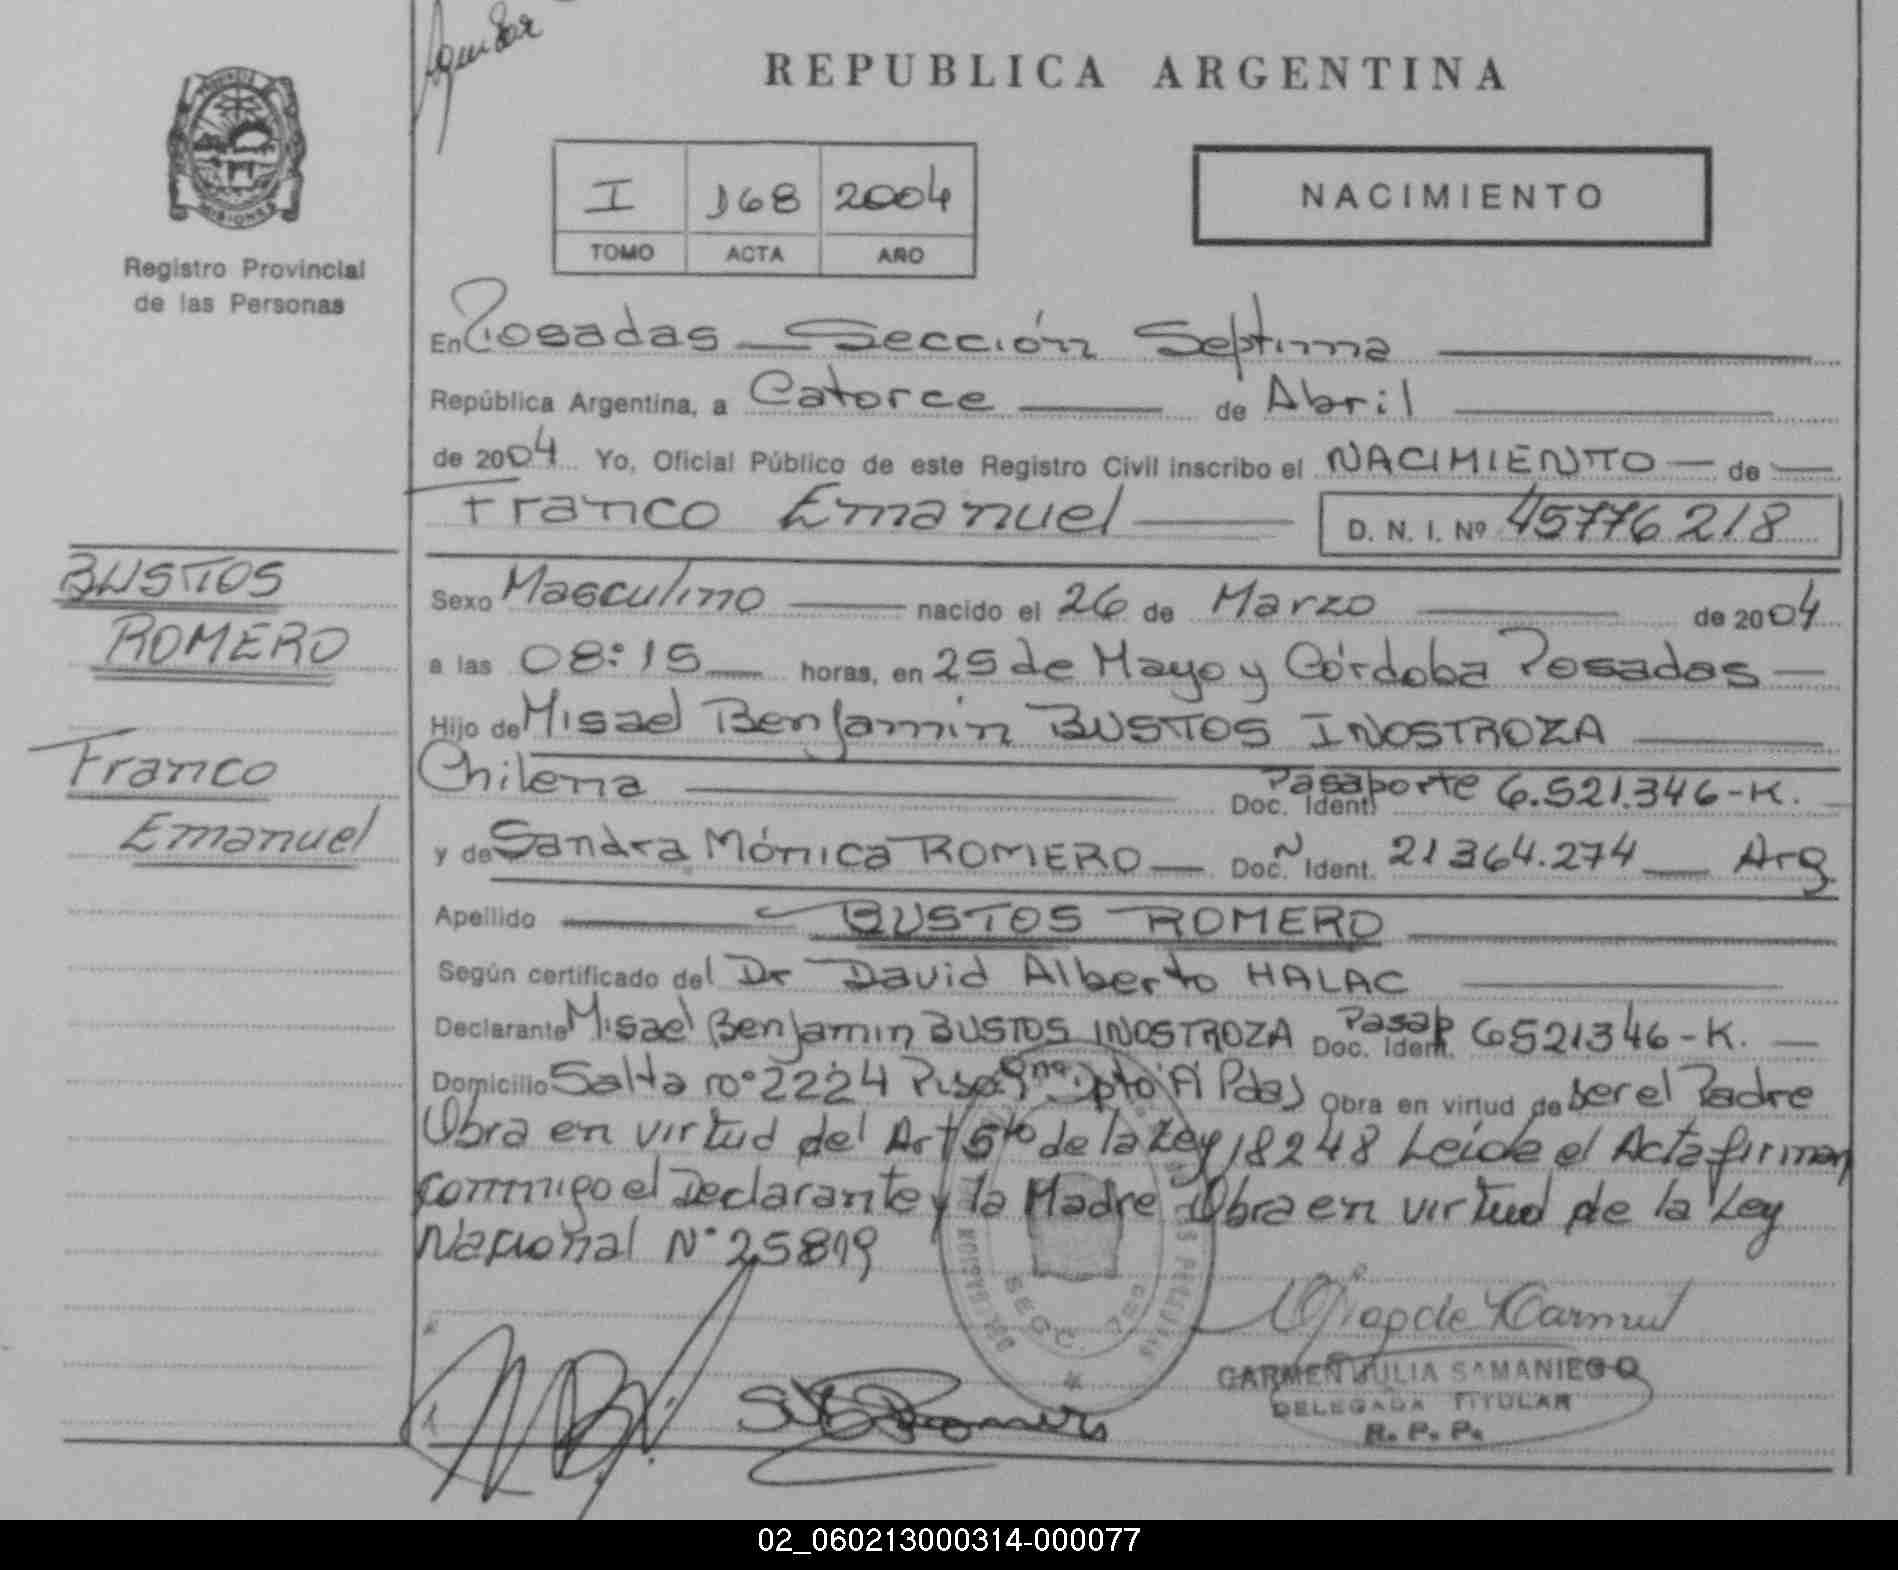 Aguilar
REPUBLICA ARGENTINA
MISIONES
Registro Provincial
de las Personas
I 168 2004
TOMO ACTA AÑO
NACIMIENTO
En Posadas Sección Septima
República Argentina, a Catorce de Abril
de 2004 Yo, Oficial Público de este Registro Civil inscribo el NACIMIENTO de
Franco Emanuel D. N. I. Nº 45776218
BUSTOS
ROMERO
Franco
Emanuel
Sexo Masculino nacido el 26 de Marzo de 2004
a las 08:15 horas, en 25 de Mayo y Córdoba Posadas
Hijo de Misael Benjamin BUSTOS INOSTROZA
Chilena Doc. Ident. Pasaporte 6.521.346-K.
y de Sandra Mónica ROMERO Doc. N Ident. 21364.274 Arg
Apellido BUSTOS ROMERO
Según certificado del Dr David Alberto HALAC
Declarante Misael Benjamin BUSTOS INOSTROZA Doc. Ident. Pasap 6521346-K.
Domicilio Salta nº 2224 Piso 9no Dpto A Pdas Obra en virtud de ser el Padre
Obra en virtud del Art 5to de la Ley 18248 Leida el Acta firman
conmigo el Declarante y la Madre Obra en virtud de la Ley
Nacional Nº 25819
CARMEN JULIA SAMANIEGO
DELEGADA TITULAR
R. P. P.
02_060213000314-000077